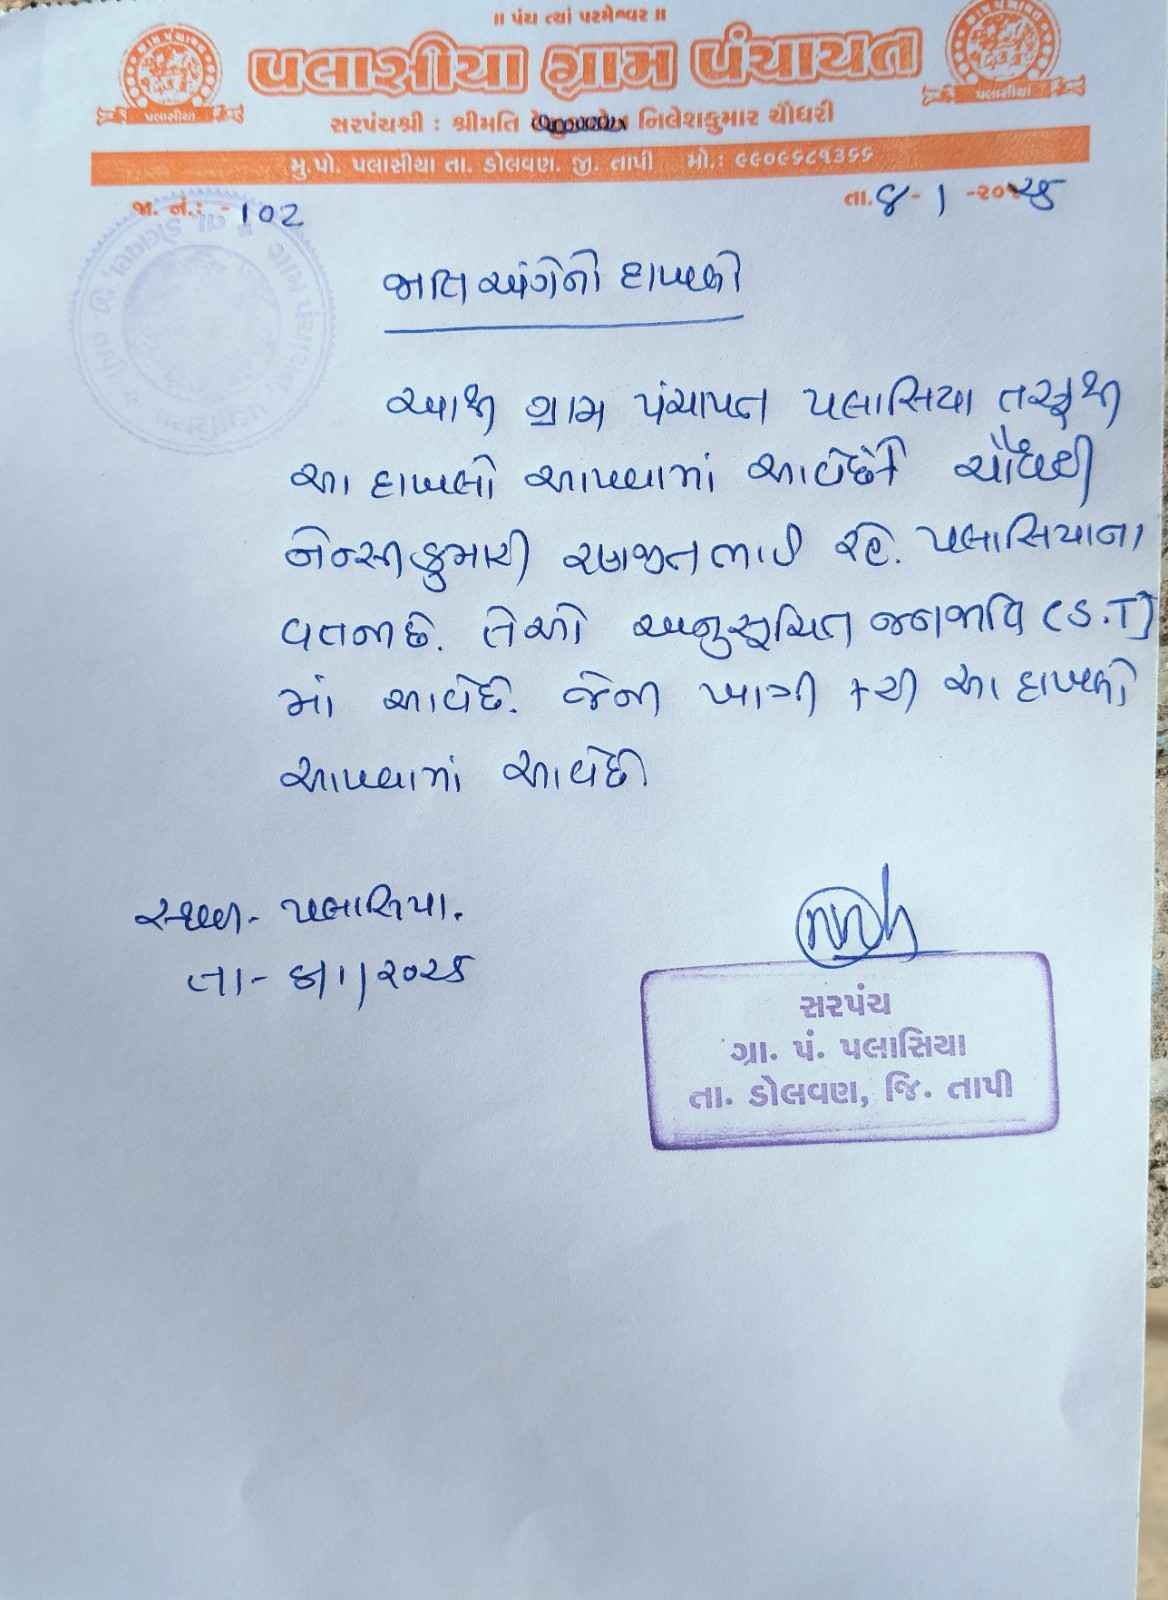 ॥ પંચ ત્યાં પરમેશ્વર ॥
પલાસીયા ગ્રામ પંચાયત
સરપંચશ્રી : શ્રીમતિ નિલેશકુમાર ચૌધરી
મુ.પો. પલાસીયા તા. ડોલવણ. જી. તાપી મો.: ૯૯૦૯૬૮૧૩૬૬
જા. નં.: - 102
તા. ૪ - ૧ -૨૦૨૬
જાતિ અંગેનો દાખલો
આથી ગ્રામ પંચાયત પલાસિયા તરફથી
આ દાખલો આપવામાં આવેછેકે ચૌધરી
નેન્સીકુમારી રણજીતભાઈ રહે. પલાસિયાના
વતનીછે. તેઓ અનુસૂચિત જનજાતિ (S.T)
માં આવેછે. જેની ખાત્રી કરી આ દાખલો
આપવામાં આવેછે
સ્થળ - પલાસિયા.
તા - ૪/૧/૨૦૨૬
સરપંચ
ગ્રા. પં. પલાસિયા
તા. ડોલવણ, જિ. તાપી